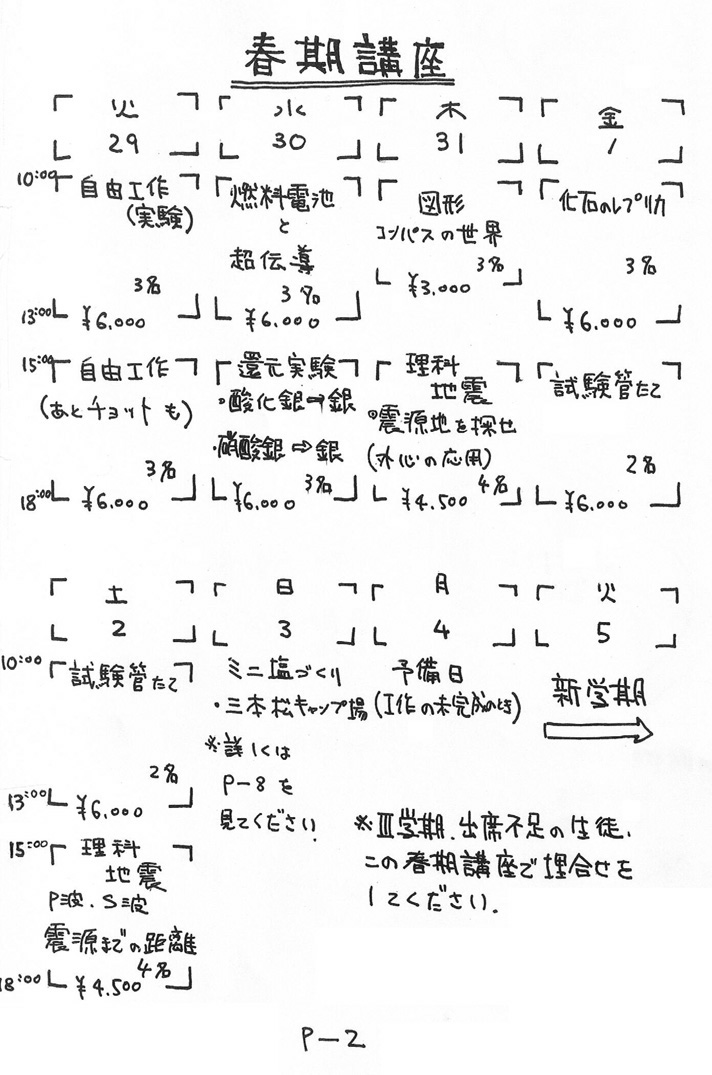 春期講座
火 水 木 金
29 30 31 1
10:00 自由工作 燃料電池 図形 化石のレプリカ
(実験) と コンパスの世界
超伝導
3名 3名 3名 3名
13:00 ¥6.000 ¥6.000 ¥3.000 ¥6.000
15:00 自由工作 還元実験 理科 試験管たて
(あとチョットも) ・酸化銀⇒銀 地震
・硝酸銀⇒銀 ◎震源地を探せ
(外心の応用)
3名 3名 4名 2名
18:00 ¥6.000 ¥6.000 ¥4.500 ¥6.000
土 日 月 火
2 3 4 5
10:00 試験管たて ミニ塩づくり 予備日 新学期
・三本松キャンプ場 (工作の未完成のとき)
※詳しくは
P-8を
見てください
2名
13:00 ¥6.000
15:00 理科
地震
P波、S波
震源までの距離
4名
18:00 ¥4.500
※Ⅲ学期、出席不足の生徒、
この春期講座で埋合せを
してください.
P-2